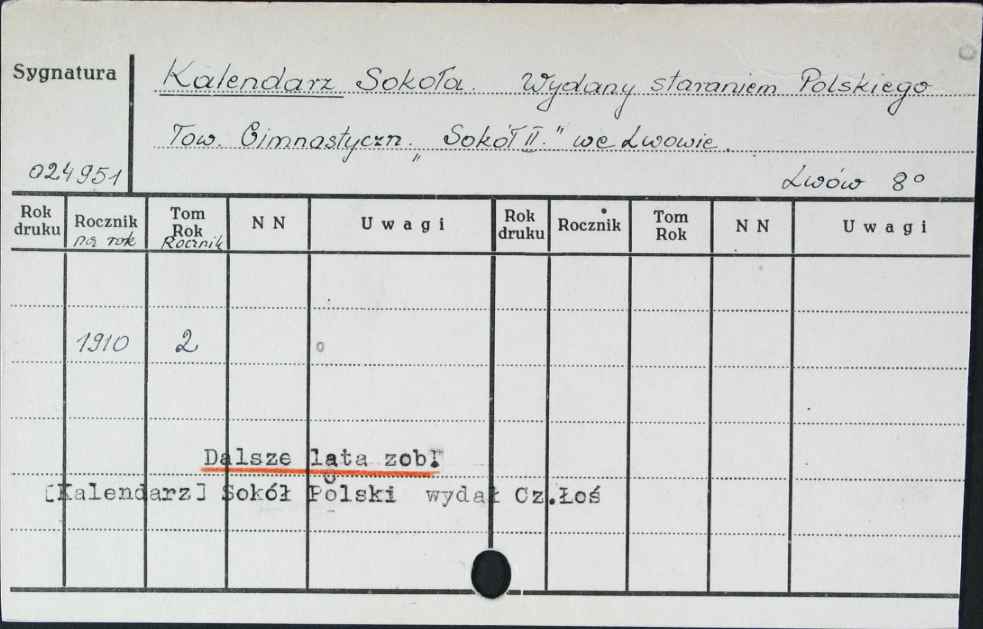 Sygnatura
Kalendarz Sokoła. Wydany staraniem Polskiego
Tow. Gimnastyczn. „Sokół II." we Lwowie.
024951
Lwów 8°
Rok druku Rocznik na rok Tom Rok Rocznik N N Uwagi Rok druku Rocznik Tom Rok N N Uwagi
1910 2
Dalsze lata zob.
[Kalendarz] Sokół Polski wydał Cz.Łoś